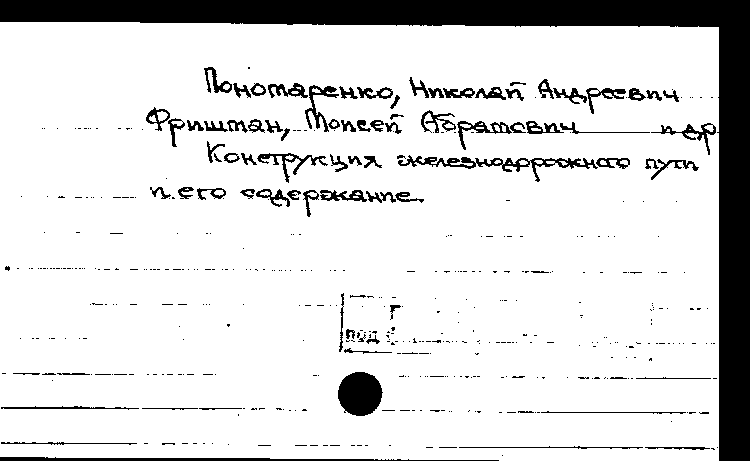 Пономаренко, Николай Андреевич
Фришман, Моисей Абрамович и др
Конструкция железнодорожного пути
и его содержание.
под